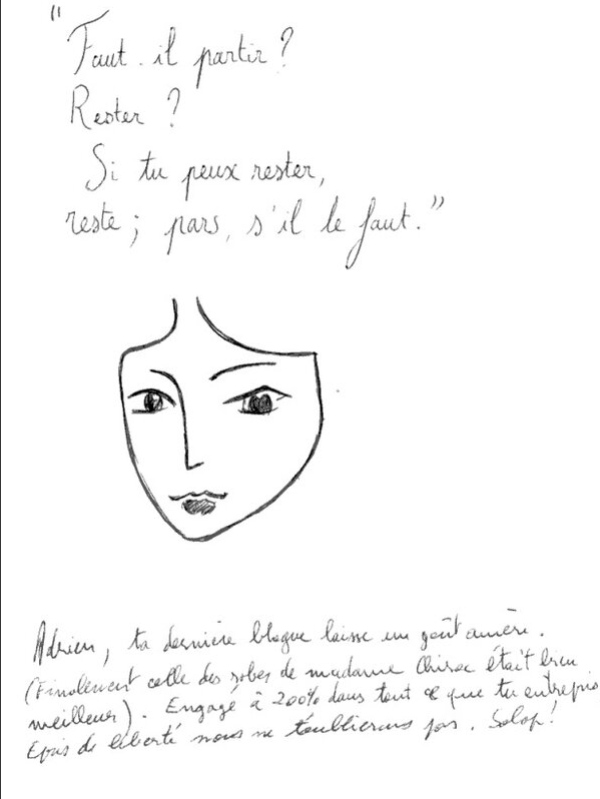 "Faut-il partir ?
Rester ?
Si tu peux rester,
reste ; pars, s'il le faut."
Adrien, ta dernière blague laisse un goût amère.
(Finalement celle des robes de madame Chirac était bien
meilleur). Engagé à 200% dans tout ce que tu entrepris
Epris de liberté nous ne t'oublierons pas. Salop !